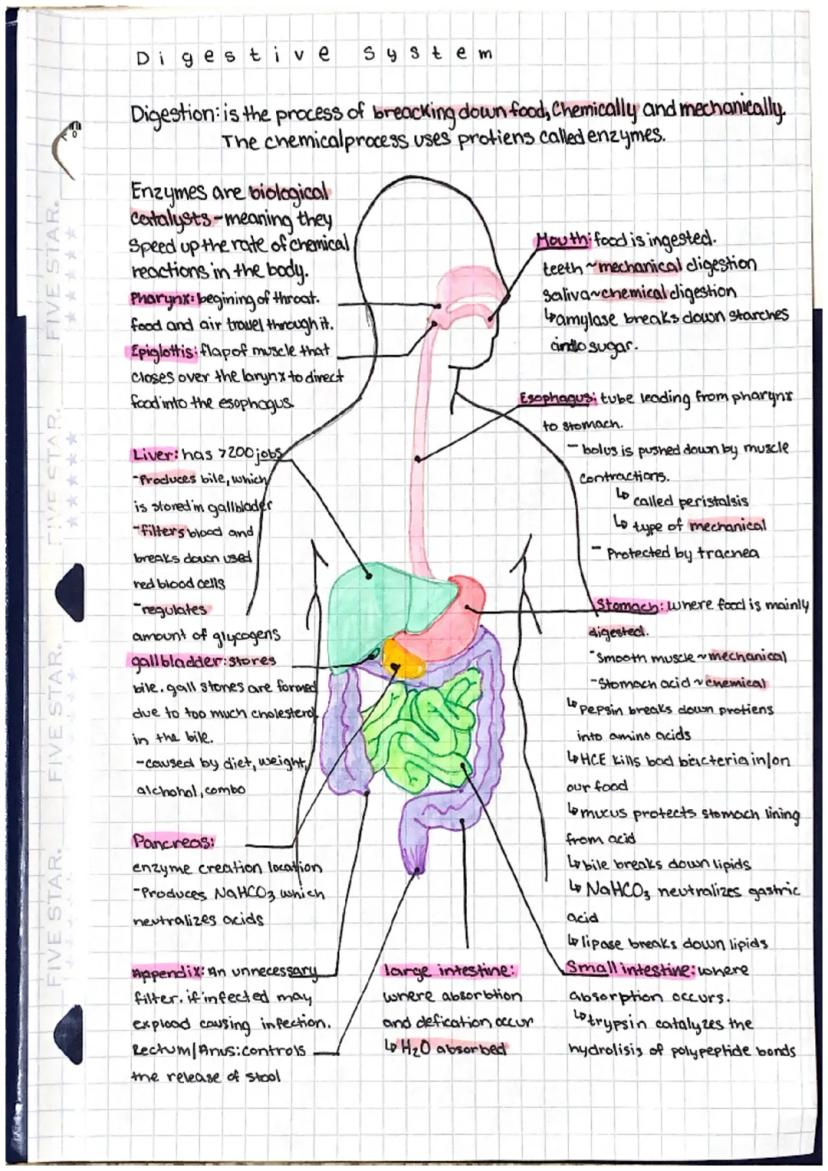 Digestive System
Digestion: is the process of breacking down food, Chemically and mechanically.
The chemical process uses protiens called enzymes.
Enzymes are biological
catalysts - meaning they
speed up the rate of chemical
reactions in the body.
Pharynx: begining of throat.
food and air travel through it.
Epiglottis: flap of muscle that
closes over the larynx to direct
food into the esophagus
Liver: has >200 jobs
-Produces bile, which
is stored in gallbladder
-filters blood and
breaks down used
red blood cells
-regulates
amount of glycogens
gallbladder: stores
bile. gall stones are formed
due to too much cholesterol
in the bile.
-caused by diet, weight,
alchohol, combo
Pancreas:
enzyme creation location
-Produces NaHCO3 which
neutralizes acids
Appendix: An unnecessary
filter. if infected may
expload causing infection.
Rectum/Anus: controls
the release of stool
Mouth: food is ingested.
teeth ~ mechanical digestion
saliva ~ chemical digestion
↳ amylase breaks down starches
into sugar.
Esophagus: tube leading from pharynx
to stomach.
- bolus is pushed down by muscle
contractions.
↳ called peristalsis
↳ type of mechanical
- Protected by tracnea
Stomach: where food is mainly
digested.
-Smooth muscle ~ mechanical
-Stomach acid ~ chemical
↳ pepsin breaks down protiens
into amino acids
↳ HCE kills bad bacteria in/on
our food
↳ mucus protects stomach lining
from acid
↳ bile breaks down lipids
↳ NaHCO3 neutralizes gastric
acid
↳ lipase breaks down lipids
large intestine:
where absorbtion
and defication occur
↳ H2O absorbed
Small intestine: where
absorption occurs.
↳ trypsin catalyzes the
hydrolisis of polypeptide bonds
FIVE STAR.
FIVE STAR.
FIVE STAR.
FIVE STAR.